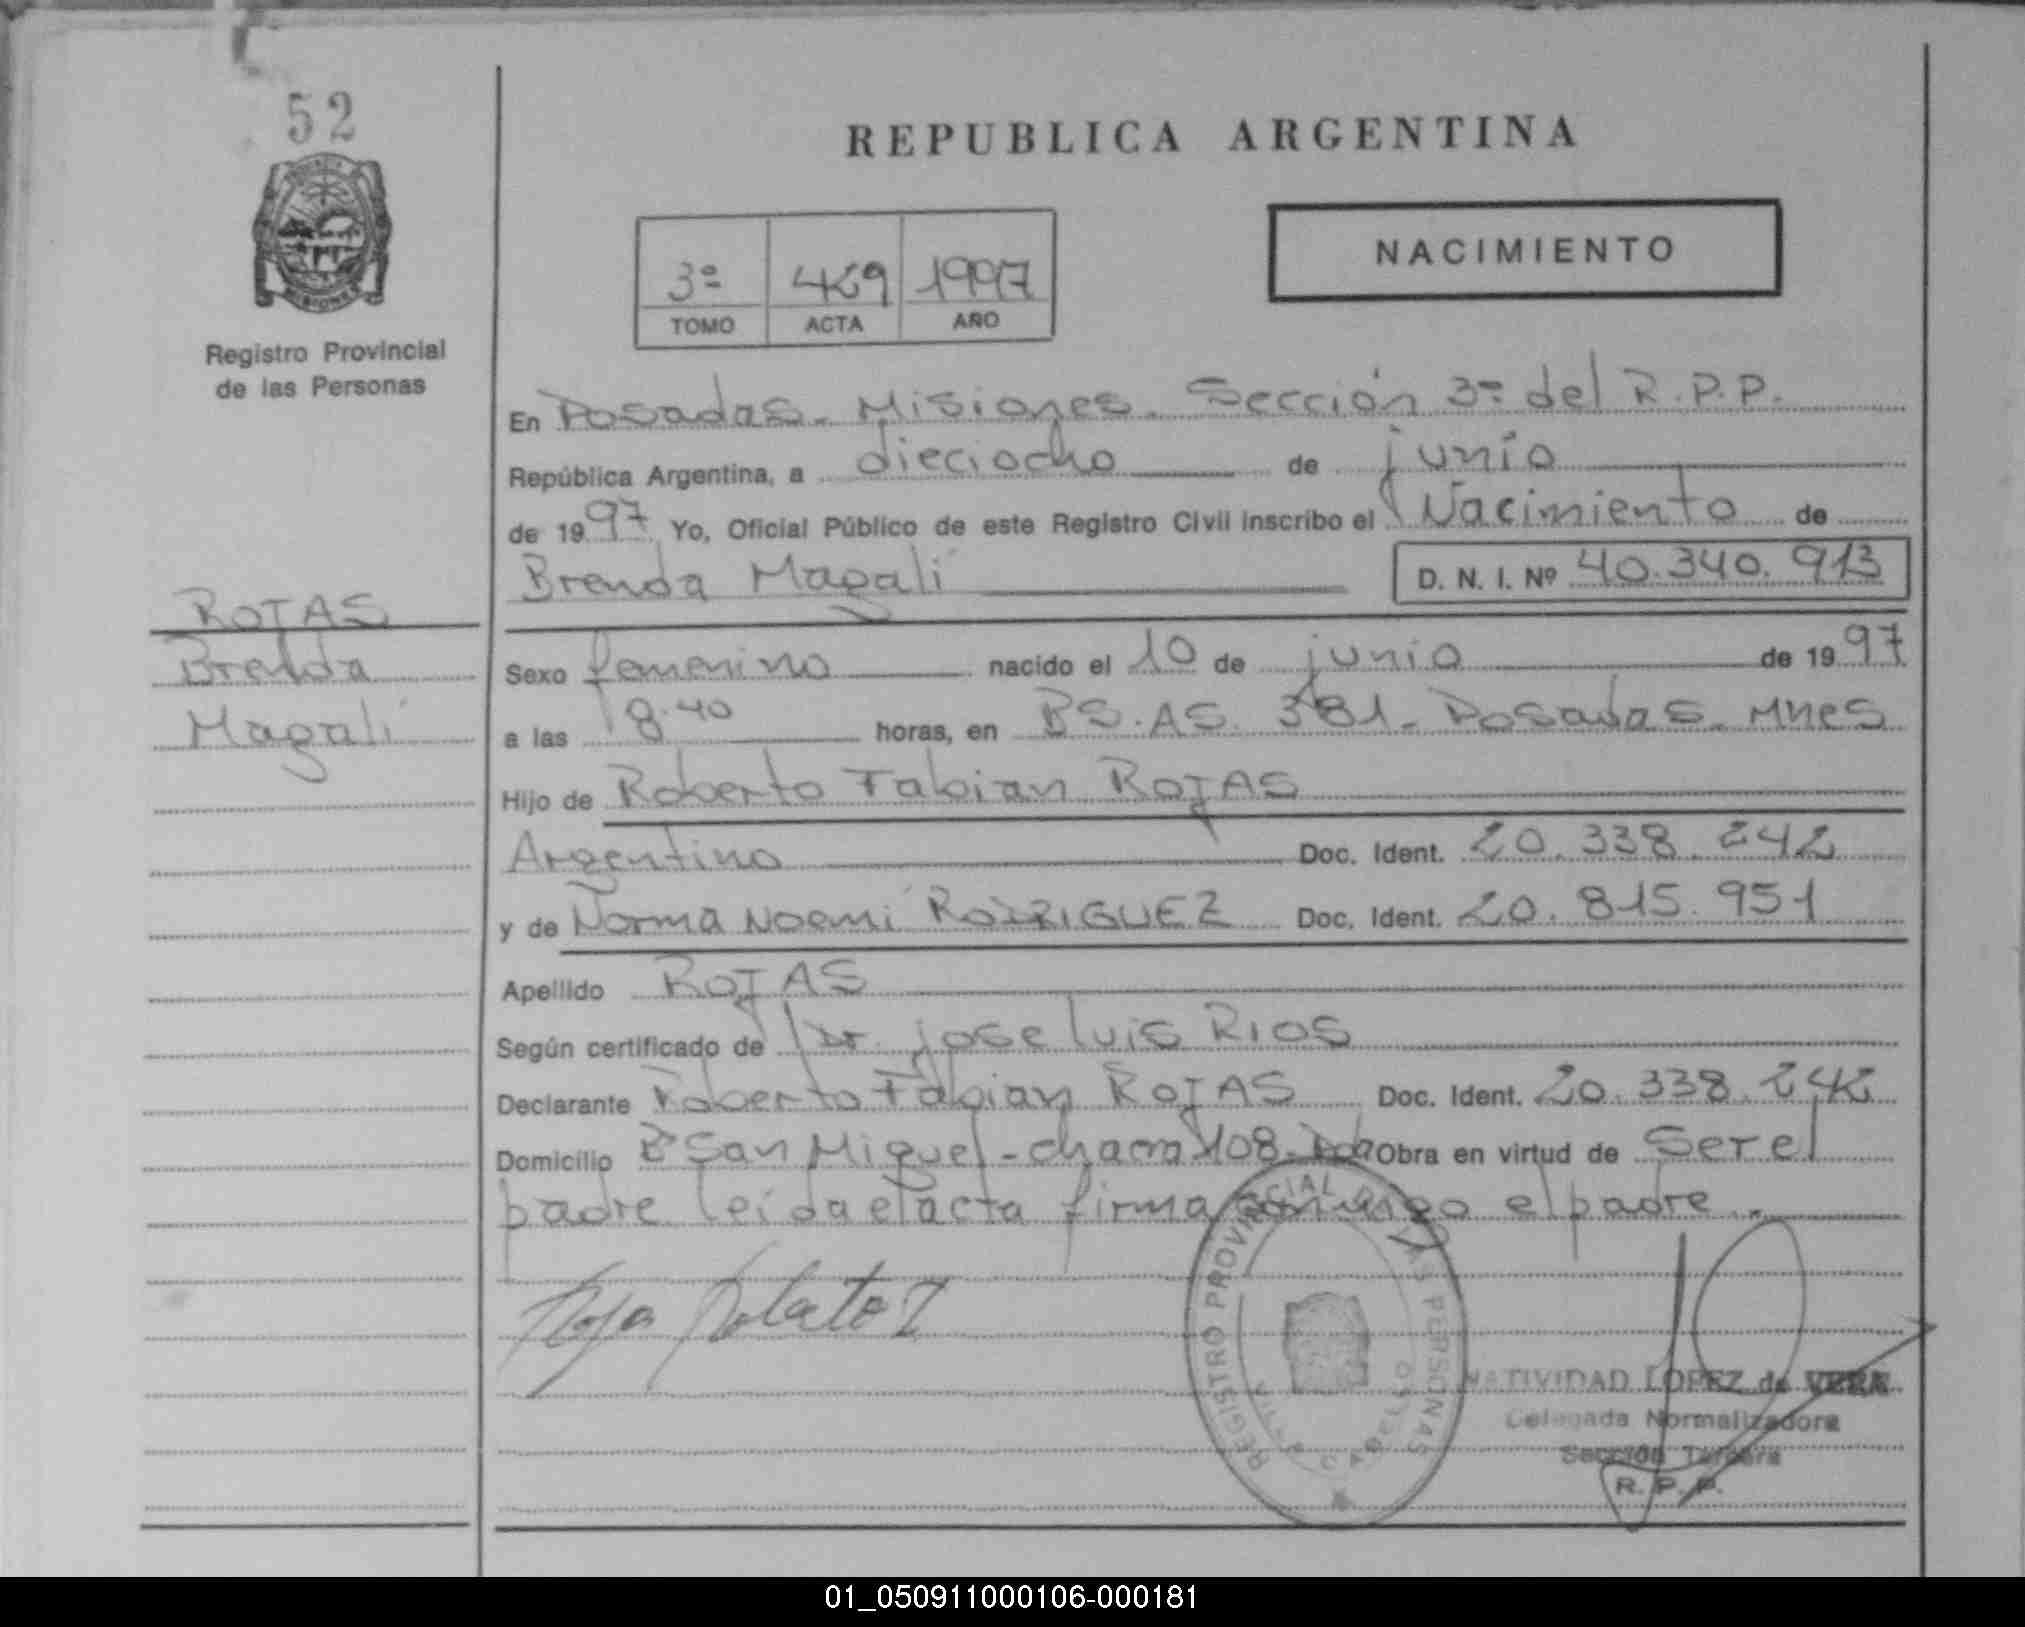 52
REPUBLICA ARGENTINA
NACIMIENTO
3º 469 1997
TOMO ACTA AÑO
Registro Provincial
de las Personas
En Posadas - Misiones - Sección 3º del R.P.P.
República Argentina, a dieciocho de junio
de 1997 Yo, Oficial Público de este Registro Civil inscribo el Nacimiento de
Brenda Magalí D. N. I. Nº 40.340.913
ROJAS
Brenda
Magalí
Sexo femenino nacido el 10 de junio de 1997
a las 8.40 horas, en BS.AS. 381 - Posadas - Mnes
Hijo de Roberto Fabian ROJAS
Argentino Doc. Ident. 20.338.242
y de Norma Noemí RODRIGUEZ Doc. Ident. 20.815.951
Apellido ROJAS
Según certificado de Dr. jose luis RIOS
Declarante Roberto Fabian ROJAS Doc. Ident. 20.338.242
Domicilio Bº San Miguel - chacra 108 - Obra en virtud de Ser el
padre leida el acta firma conmigo el padre.
REGISTRO PROVINCIAL DE LAS PERSONAS
NATIVIDAD LOPEZ de VERA
Delegada Normalizadora
Sección Tercera
R. P. P.
01_050911000106-000181